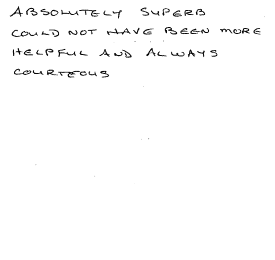 ABSOLUTELY SUPERB
COULD NOT HAVE BEEN MORE
HELPFUL AND ALWAYS
COURTEOUS